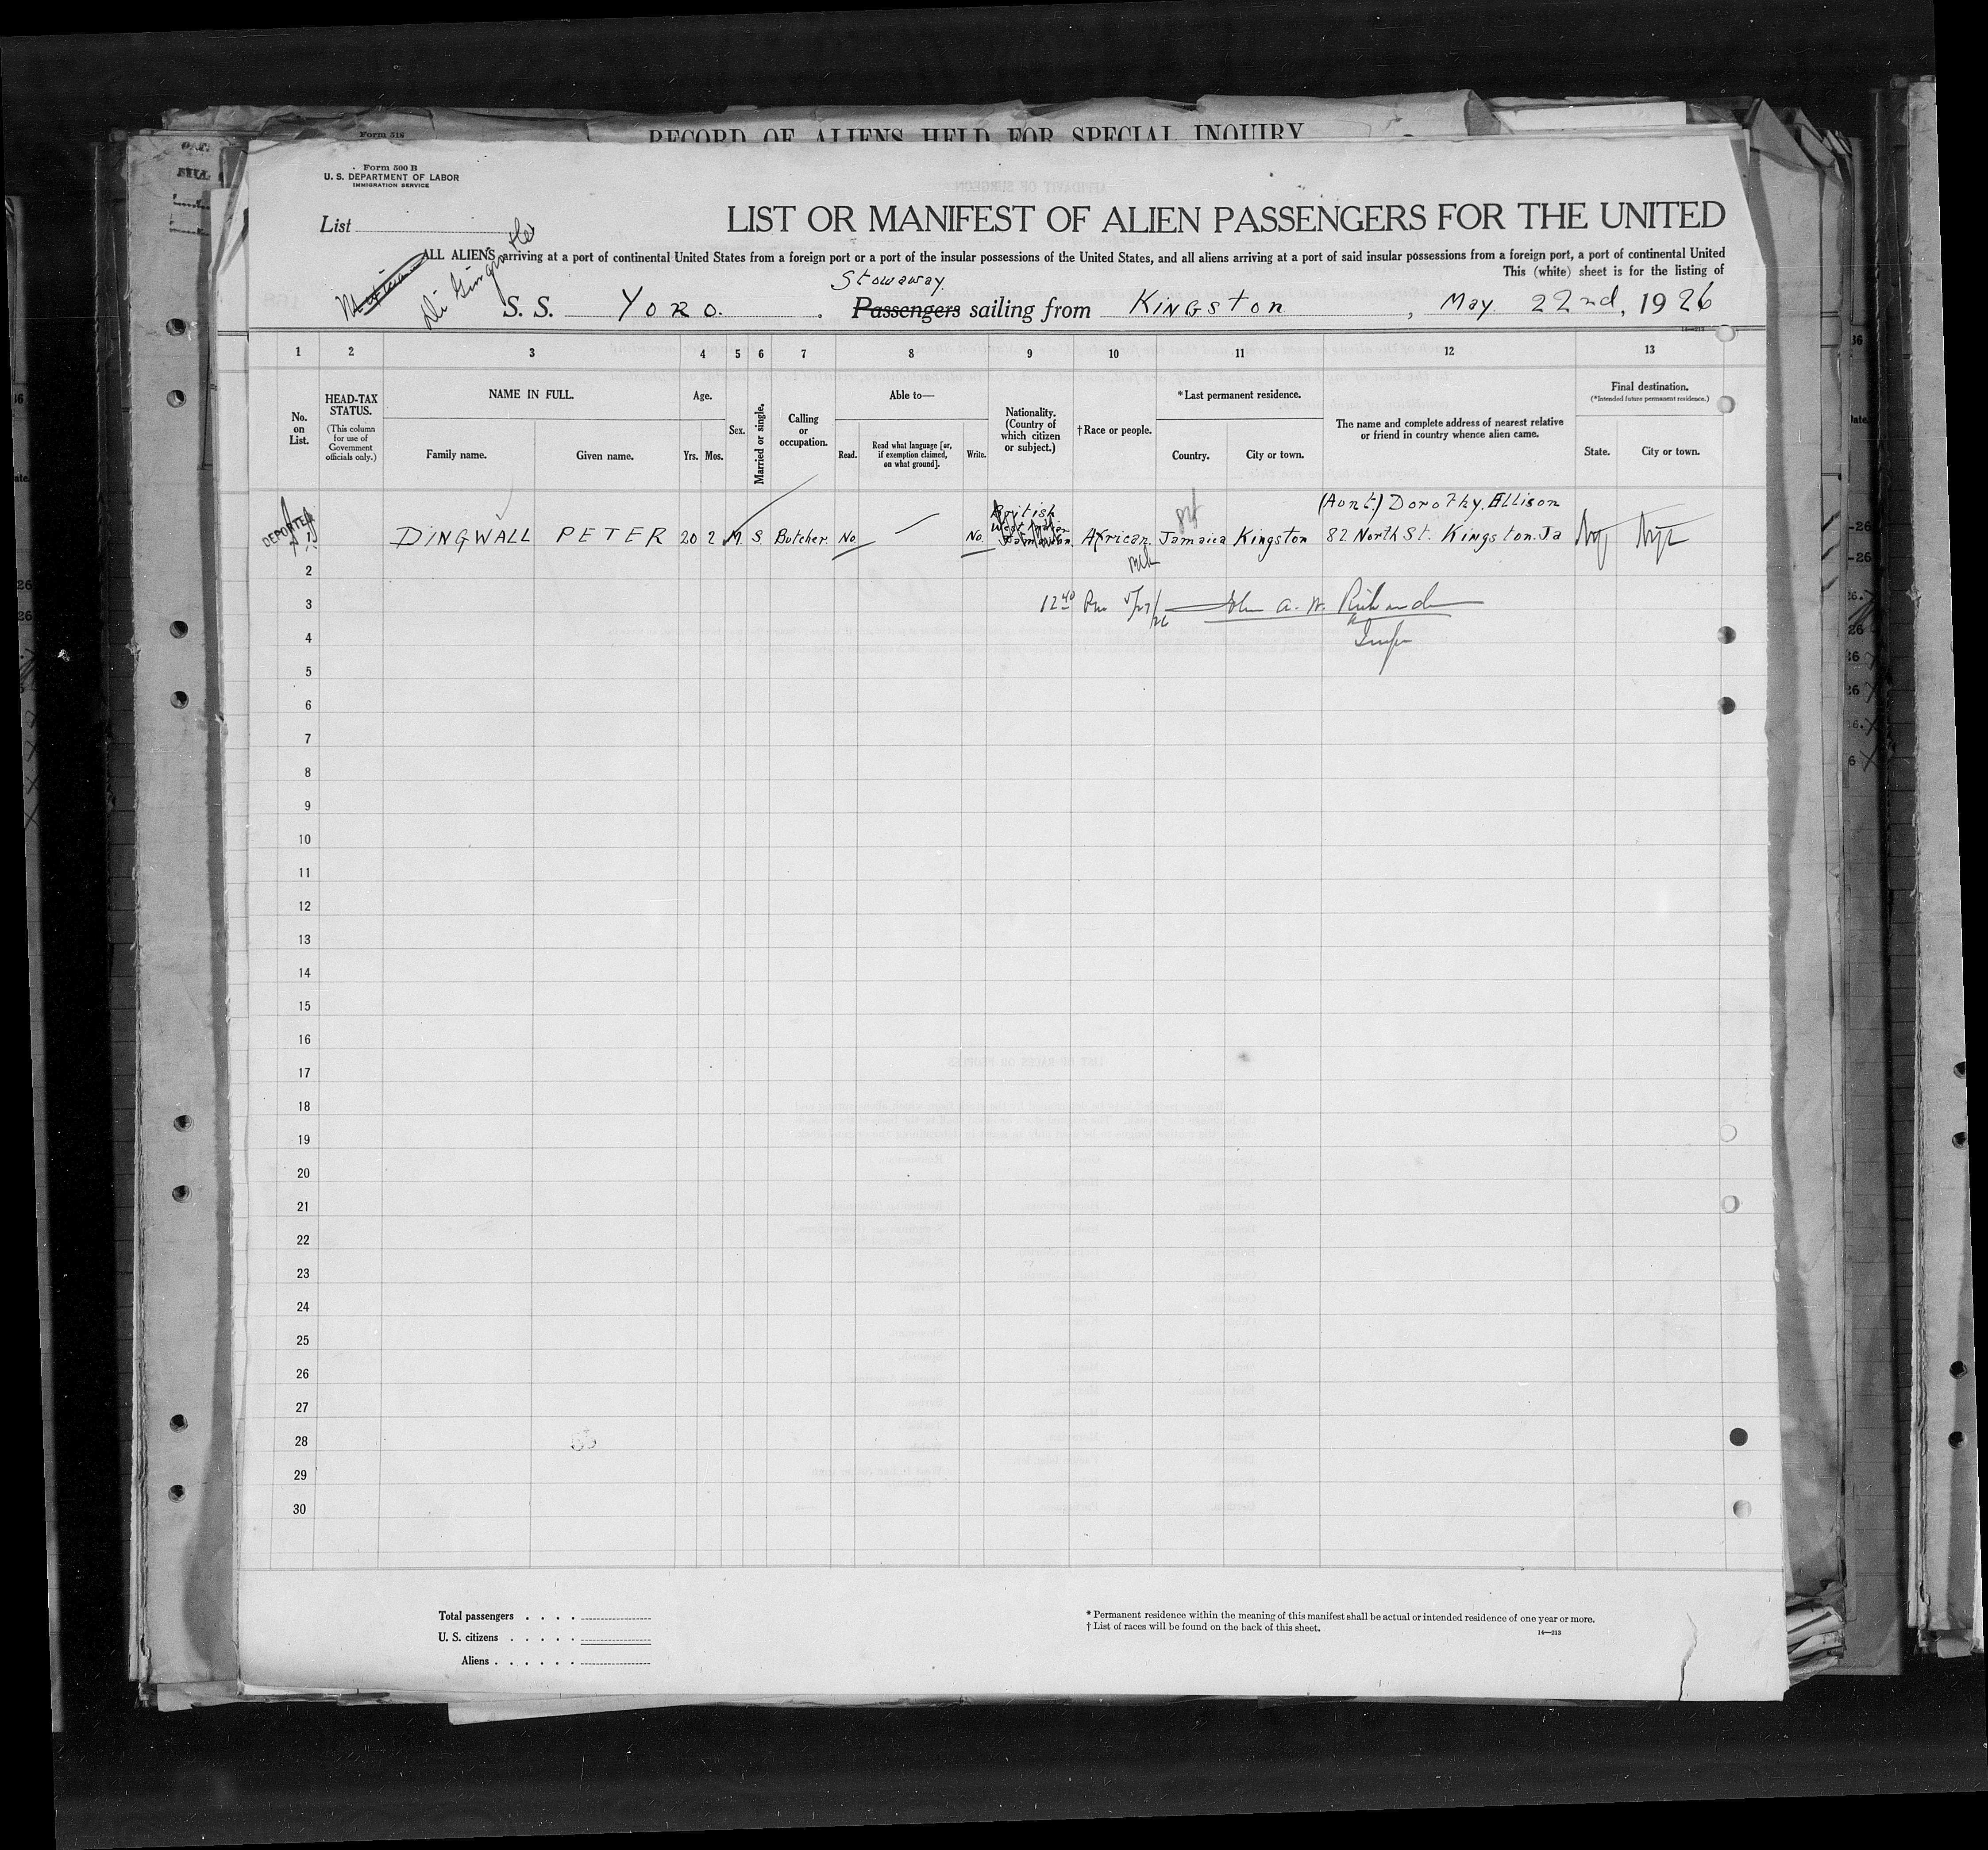 Form 518
RECORD OF ALIENS HELD FOR SPECIAL INQUIRY
Form 500 B
U. S. DEPARTMENT OF LABOR
IMMIGRATION SERVICE
List
LIST OR MANIFEST OF ALIEN PASSENGERS FOR THE UNITED
ALL ALIENS arriving at a port of continental United States from a foreign port or a port of the insular possessions of the United States, and all aliens arriving at a port of said insular possessions from a foreign port, a port of continental United
This (white) sheet is for the listing of
Stowaway.
S. S. YORO. Passengers sailing from KINGSTON, May 22nd, 1926
14—213
1 2 3 4 5 6 7 8 9 10 11 12 13
No. on List.
HEAD-TAX STATUS.
(This column for use of Government officials only.)
NAME IN FULL.
Family name.
Given name.
Age.
Yrs. Mos.
Sex.
Married or single.
Calling or occupation.
Able to—
Read.
Read what language [or, if exemption claimed, on what ground].
Write.
Nationality. (Country of which citizen or subject.)
†Race or people.
*Last permanent residence.
Country.
City or town.
The name and complete address of nearest relative or friend in country whence alien came.
Final destination.
(*Intended future permanent residence.)
State.
City or town.
DEPORTED
British
(Aunt.) Dorothy. Ellison
1 DINGWALL PETER 20 2 M. S. Butcher. No. — No. African. Jamaica Kingston 82 North St. Kingston. Ja
2
3 12 40 Pm 5/27/26 John A. W.
4
5
6
7
8
9
10
11
12
13
14
15
16
17
18
19
20
21
22
23
24
25
26
27
28
29
30
Total passengers . . . .
U. S. citizens . . . . .
Aliens . . . . . .
* Permanent residence within the meaning of this manifest shall be actual or intended residence of one year or more.
† List of races will be found on the back of this sheet.
14—213